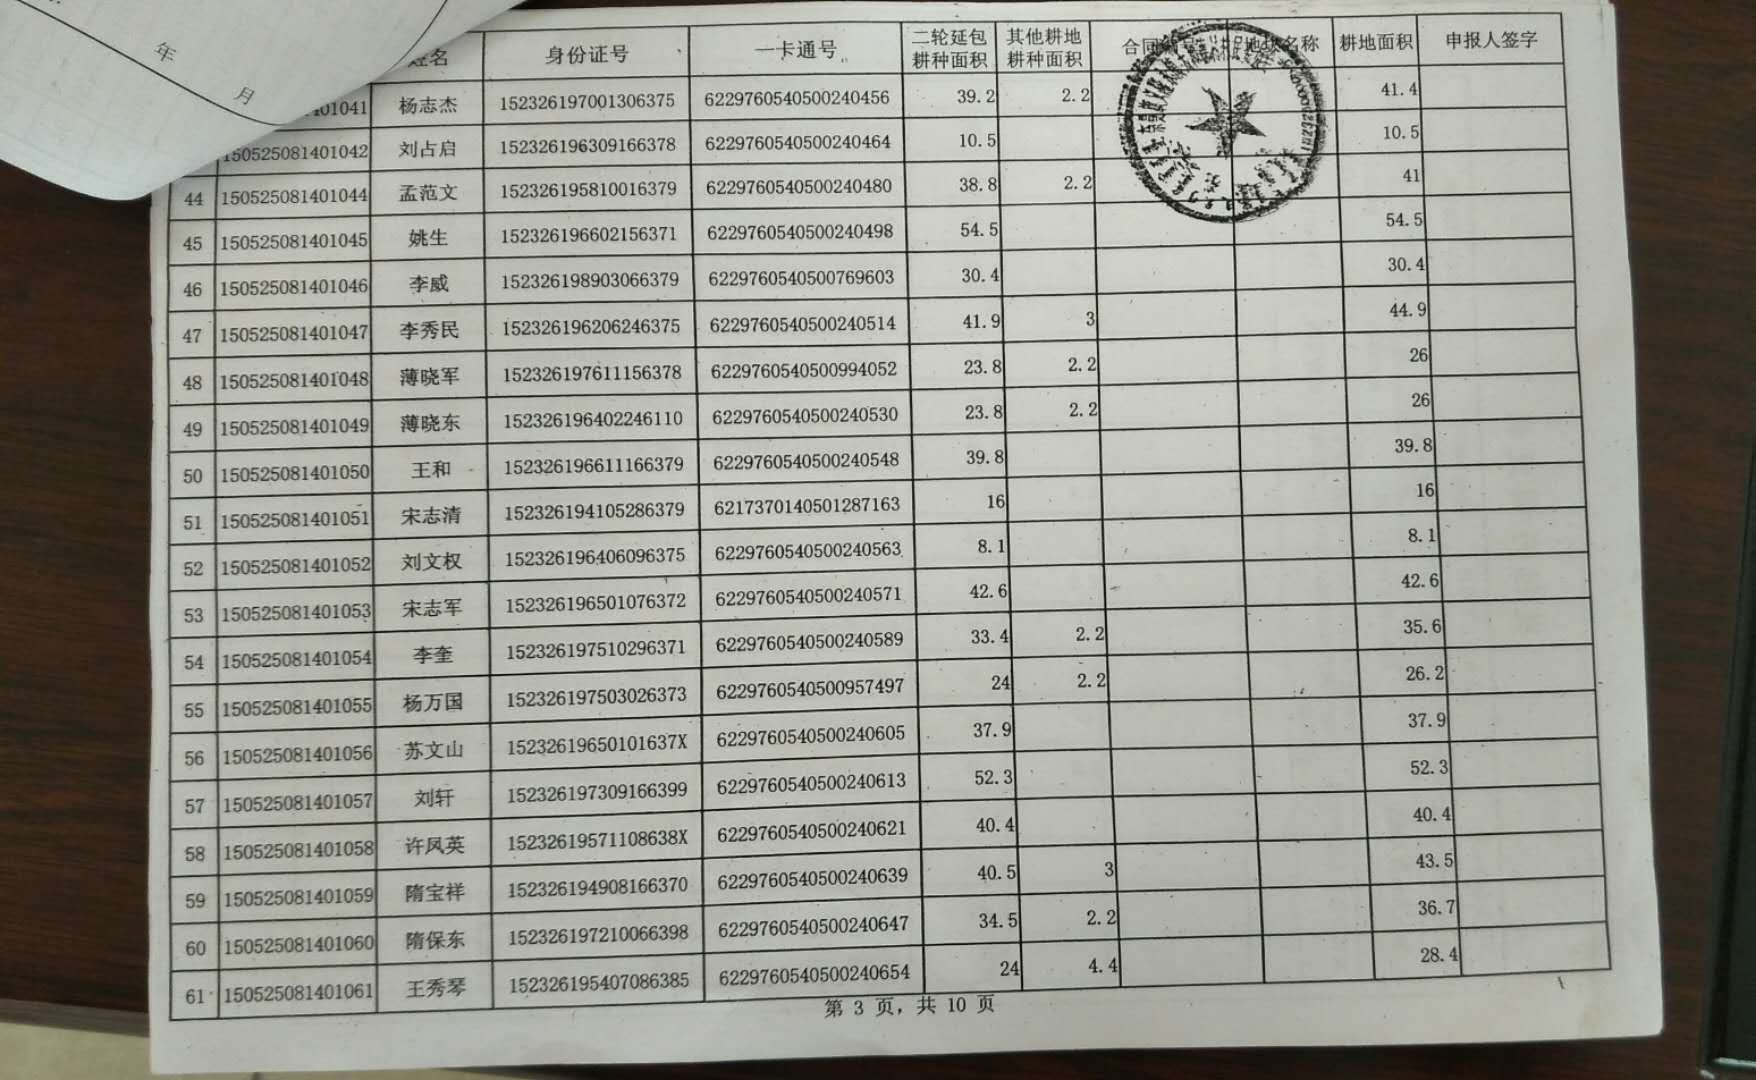 年
月
姓名 身份证号 一卡通号 二轮延包耕种面积 其他耕地耕种面积 名称 耕地面积 申报人签字
杨志杰 152326197001306375 6229760540500240456 39.2 2.2 41.4
150525081401042 刘占启 152326196309166378 6229760540500240464 10.5 10.5
44 150525081401044 孟范文 152326195810016379 6229760540500240480 38.8 2.2 41
45 150525081401045 姚生 152326196602156371 6229760540500240498 54.5 54.5
46 150525081401046 李威 152326198903066379 6229760540500769603 30.4 30.4
47 150525081401047 李秀民 152326196206246375 6229760540500240514 41.9 3 44.9
48 150525081401048 薄晓军 152326197611156378 6229760540500994052 23.8 2.2 26
49 150525081401049 薄晓东 152326196402246110 6229760540500240530 23.8 2.2 26
50 150525081401050 王和 152326196611166379 6229760540500240548 39.8 39.8
51 150525081401051 宋志清 152326194105286379 6217370140501287163 16 16
52 150525081401052 刘文权 152326196406096375 6229760540500240563 8.1 8.1
53 150525081401053 宋志军 152326196501076372 6229760540500240571 42.6 42.6
54 150525081401054 李奎 152326197510296371 6229760540500240589 33.4 2.2 35.6
55 150525081401055 杨万国 152326197503026373 6229760540500957497 24 2.2 26.2
56 150525081401056 苏文山 15232619650101637X 6229760540500240605 37.9 37.9
57 150525081401057 刘轩 152326197309166399 6229760540500240613 52.3 52.3
58 150525081401058 许凤英 15232619571108638X 6229760540500240621 40.4 40.4
59 150525081401059 隋宝祥 152326194908166370 6229760540500240639 40.5 3 43.5
60 150525081401060 隋保东 152326197210066398 6229760540500240647 34.5 2.2 36.7
61 150525081401061 王秀琴 152326195407086385 6229760540500240654 24 4.4 28.4
第 3 页，共 10 页